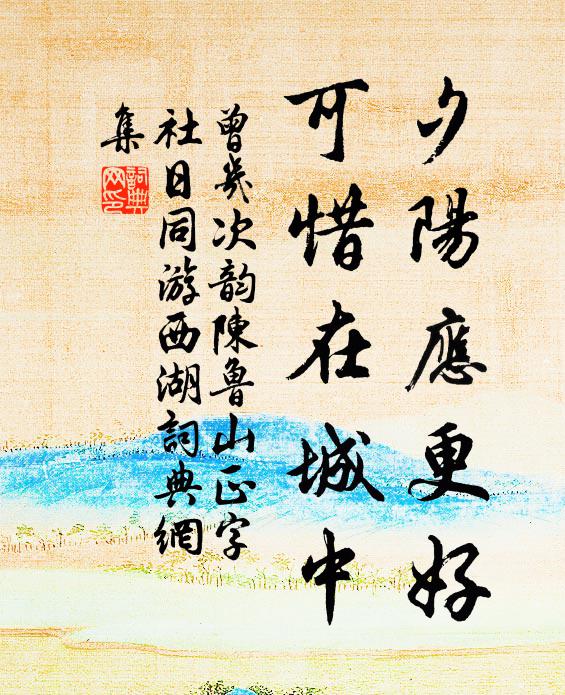 夕陽應更好
可惜在城中
曾幾次韵陳魯山正字
社日同游西湖詞典網
集
詞典网印